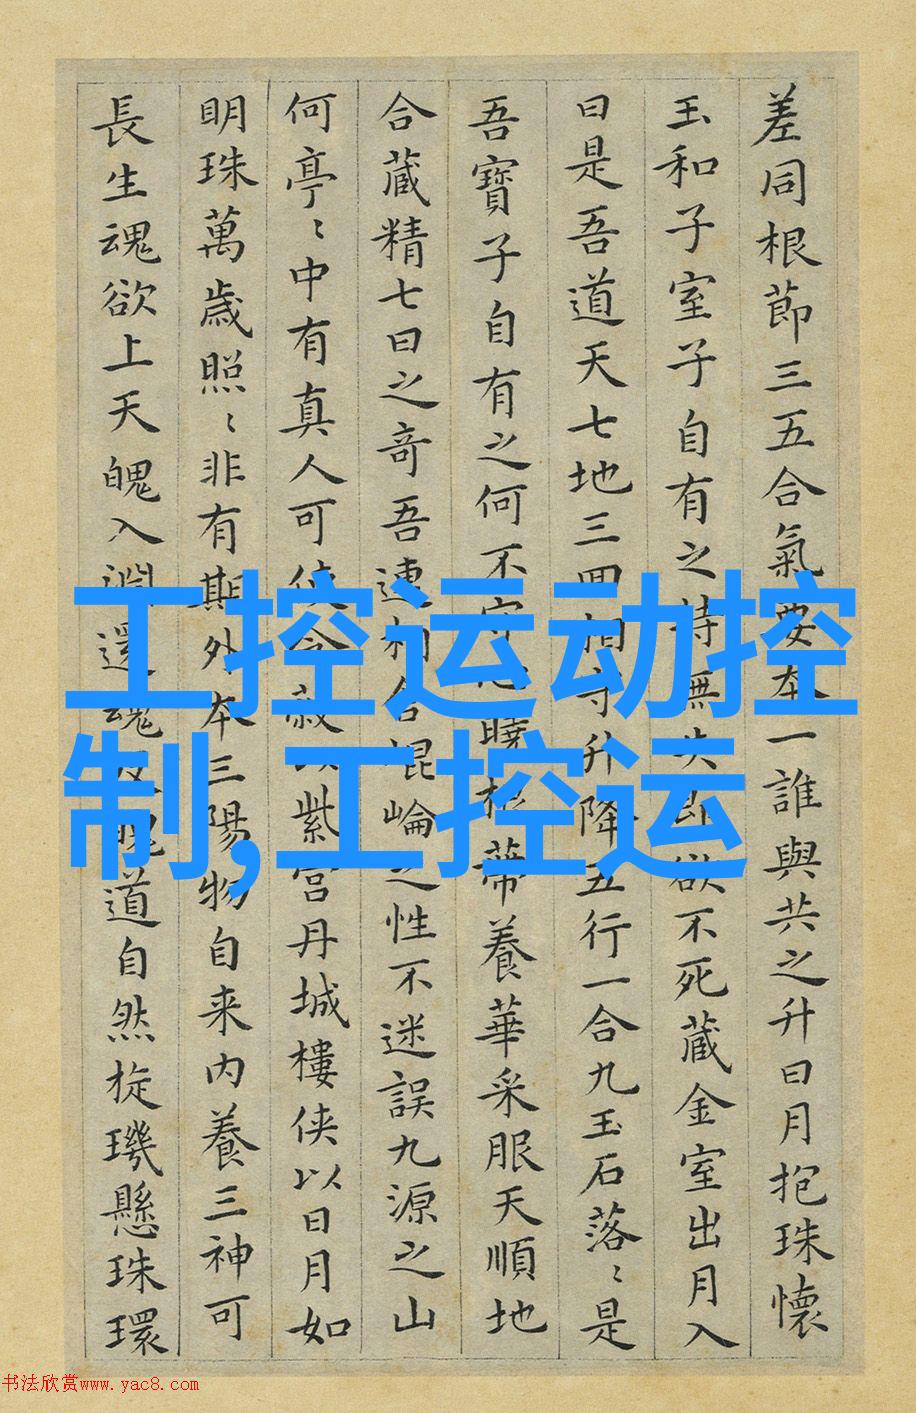 差同根節三五合氣要本一誰與共之升日月抱珠懷
玉和子室子自有之持無失即欲不死藏金室出月入
日是吾道天七地三回相守升降五行一合九玉石落〻是
吾寶子自有之何不守心曉根蒂養華采服天順地
合藏精七日之奇吾連相合崐崘之性不迷誤九源之山
何亭〻中有真人可使令蔽以紫宫丹城樓侠以日月如
明珠萬歲照〻非有期外本三陽物自来内養三神可
長生魂欲上天魄入淵還魂反魄道自然旋璣懸珠環
工控运动控
制,工控运
书法欣赏www.yac8.com